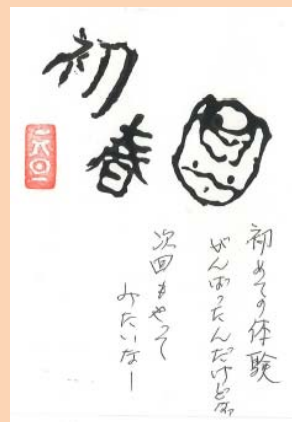 初春
初めての体験
がんばったんだけどなぁ
次回もやって
みたいなー